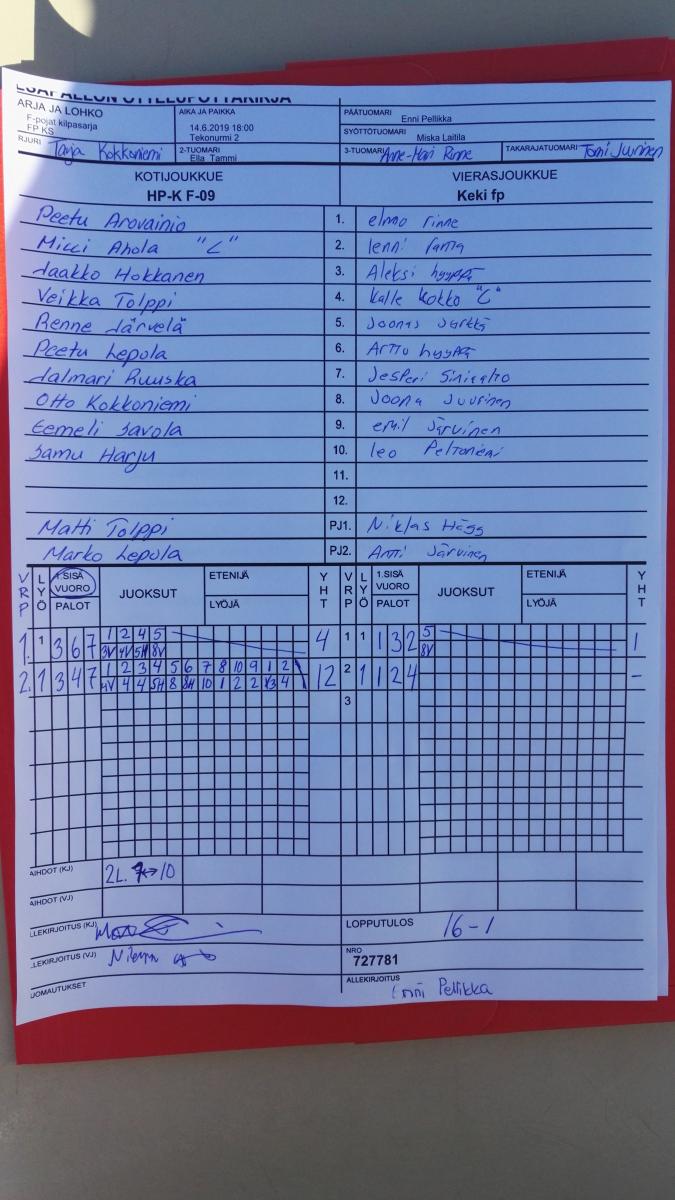 ESÄPALLON OTTELUPÖYTÄKIRJA
ARJA JA LOHKO
F-pojat kilpasarja
FP KS
AIKA JA PAIKKA
14.6.2019 18:00
Tekonurmi 2
PÄÄTUOMARI Enni Pellikka
SYÖTTÖTUOMARI Miska Laitila
RJURI Tarja Kokkoniemi 2-TUOMARI Ella Tammi 3-TUOMARI Anne-Mari Rinne TAKARAJATUOMARI Tomi Juurinen
KOTIJOUKKUE VIERASJOUKKUE
HP-K F-09 Keki fp
Peetu Arovainio 1. elmo rinne
Micci Ahola "C" 2. lenni
Jaakko Hokkanen 3. Aleksi hyyppä
Veikka Tolppi 4. kalle kokko "C"
Renne Järvelä 5. Joonas
Peetu Lepola 6. Arttu hyyppä
Jalmari Ruuska 7. Jesperi Sinisalo
Otto Kokkoniemi 8. Joona Juurinen
Eemeli Savola 9. emil Järvinen
Samu Harju 10. leo Peltoniemi
11.
12.
Matti Tolppi PJ1. Niklas Hägg
Marko Lepola PJ2. Antti Järvinen
VRP LYÖ 1.SISÄ VUORO PALOT JUOKSUT ETENIJÄ LYÖJÄ YHT VRP LYÖ 1.SISÄ VUORO PALOT JUOKSUT ETENIJÄ LYÖJÄ YHT
1. 1 3 6 7 1 2 4 5 4 1 1 1 3 2 5 1
3V 4V 5H 8V 8V
2. 1 3 4 7 1 2 3 4 5 6 7 8 10 9 1 2 12 2 1 1 2 4 -
4V 4 4 5H 8 8H 10 1 2 2 13 4
3
AIHDOT (KJ) 2L. 7↔10
AIHDOT (VJ)
LLEKIRJOITUS (KJ) LOPPUTULOS 16-1
LLEKIRJOITUS (VJ) NRO
727781
UOMAUTUKSET ALLEKIRJOITUS Enni Pellikka